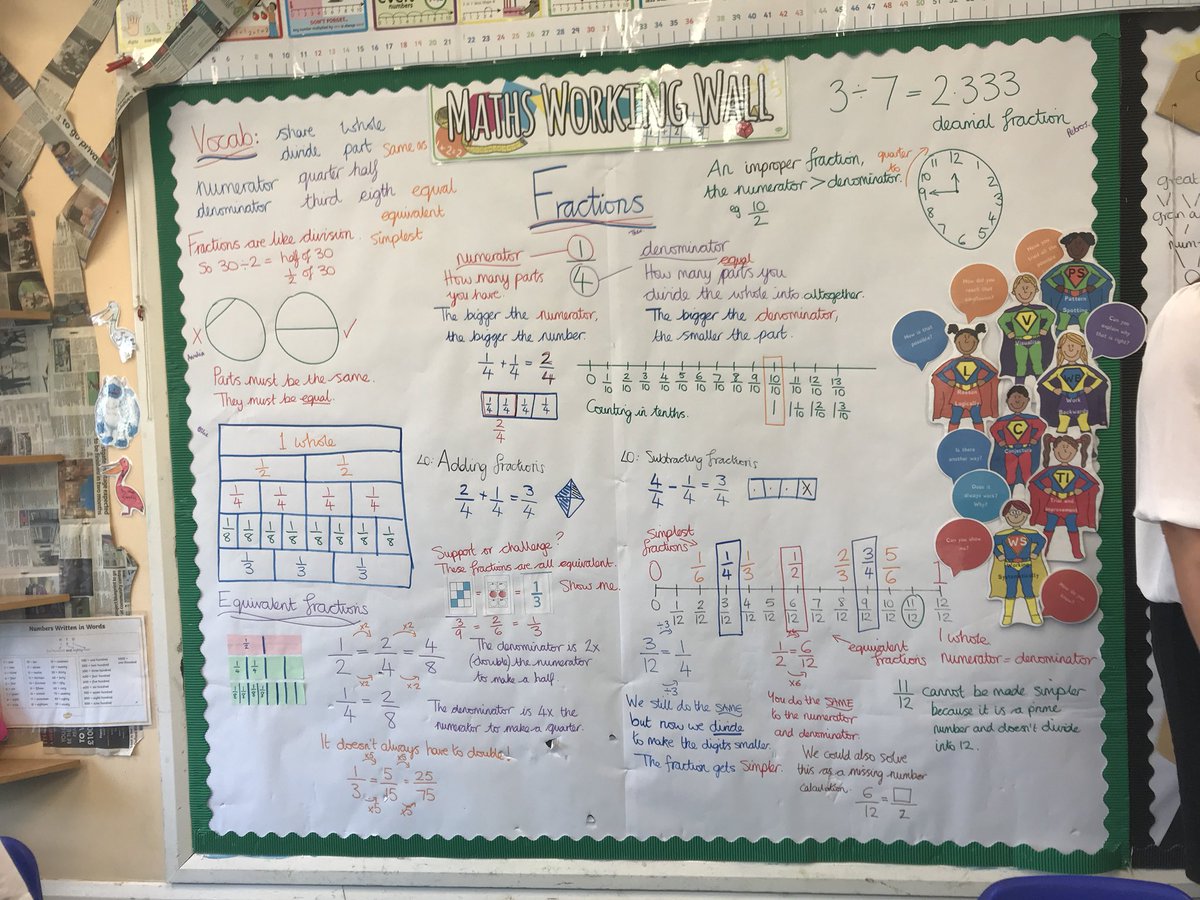 MATHS WORKING WALL
3÷7 = 2.333
decimal fraction
Vocab: share whole
divide part same as
numerator quarter half
denominator third eigth equal
equivalent
simplest
Fractions
An improper fraction,
the numerator > denominator.
eg 10/2
quarter to
12 1 2 3 4 5 6 7 8 9 10 11
Fractions are like division.
So 30÷2 = half of 30
1/2 of 30
X ✓
Parts must be the same.
They must be equal.
numerator 1/4 denominator
How many parts
you have.
The bigger the numerator,
the bigger the number.
equal
How many parts you
divide the whole into altogether.
The bigger the denominator,
the smaller the part.
1/4 + 1/4 = 2/4
1/4 1/4 1/4 1/4
2/4
0 1/10 2/10 3/10 4/10 5/10 6/10 7/10 8/10 9/10 10/10 11/10 12/10 13/10
Counting in tenths. 1 1 1/10 1 2/10 1 3/10
1 whole
1/2 1/2
1/4 1/4 1/4 1/4
1/8 1/8 1/8 1/8 1/8 1/8 1/8 1/8
1/3 1/3 1/3
LO: Adding fractions
2/4 + 1/4 = 3/4
LO: Subtracting fractions
4/4 - 1/4 = 3/4
X
Support or challenge?
These fractions are all equivalent.
= = 1/3 Show me.
3/9 = 2/6 = 1/3
Simplest
fractions
0 1/6 1/4 1/3 1/2 2/3 3/4 5/6 1
0 1/12 2/12 3/12 4/12 5/12 6/12 7/12 8/12 9/12 10/12 11/12 12/12
÷3
3/12 = 1/4
÷3
1/2 = 6/12
x6
equivalent
fractions
1 whole
Numerator = denominator
Equivalent fractions
1/2
1/4 1/4
1/8 1/8 1/8 1/8
x2 x2
1/2 = 2/4 = 4/8
x2 x2
1/4 = 2/8
The denominator is 2x
(double) the numerator
to make a half.
The denominator is 4x the
numerator to make a quarter.
It doesn't always have to double!
x5 x5
1/3 = 5/15 = 25/75
x5 x5
We still do the SAME
but now we divide
to make the digits smaller.
The fraction gets simpler.
You do the SAME
to the numerator
and denominator.
We could also solve
this as a missing number
calculation.
6/12 = □/2
11/12 cannot be made simpler
because it is a prime
number and doesn't divide
into 12.
PS
Pattern
Spotting
V
Visualise
L
Reason
Logically
WB
Work
Backwards
C
Conjecture
TI
Trial and
Improvement
WS
Systematically
How did you
reach that
conclusion?
How is that
possible?
Can you
explain why
that is right?
Is there
another way?
Does it
always work?
Why?
Can you show
me?
Numbers Written in Words
DON'T FORGET...
numbers
great